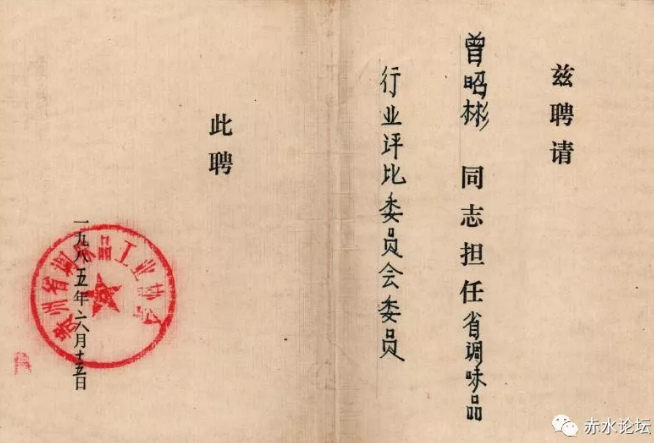 兹聘请
曾昭彬 同志担任省调味品
行业评比委员会委员
此聘
贵州省调味品工业协会
一九八五年六月十五日
赤水论坛